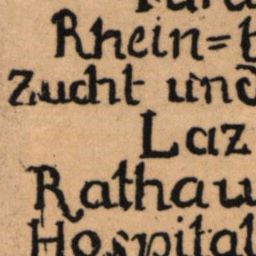 Rhein=
Zucht und
Laz
Rathau
Hospital